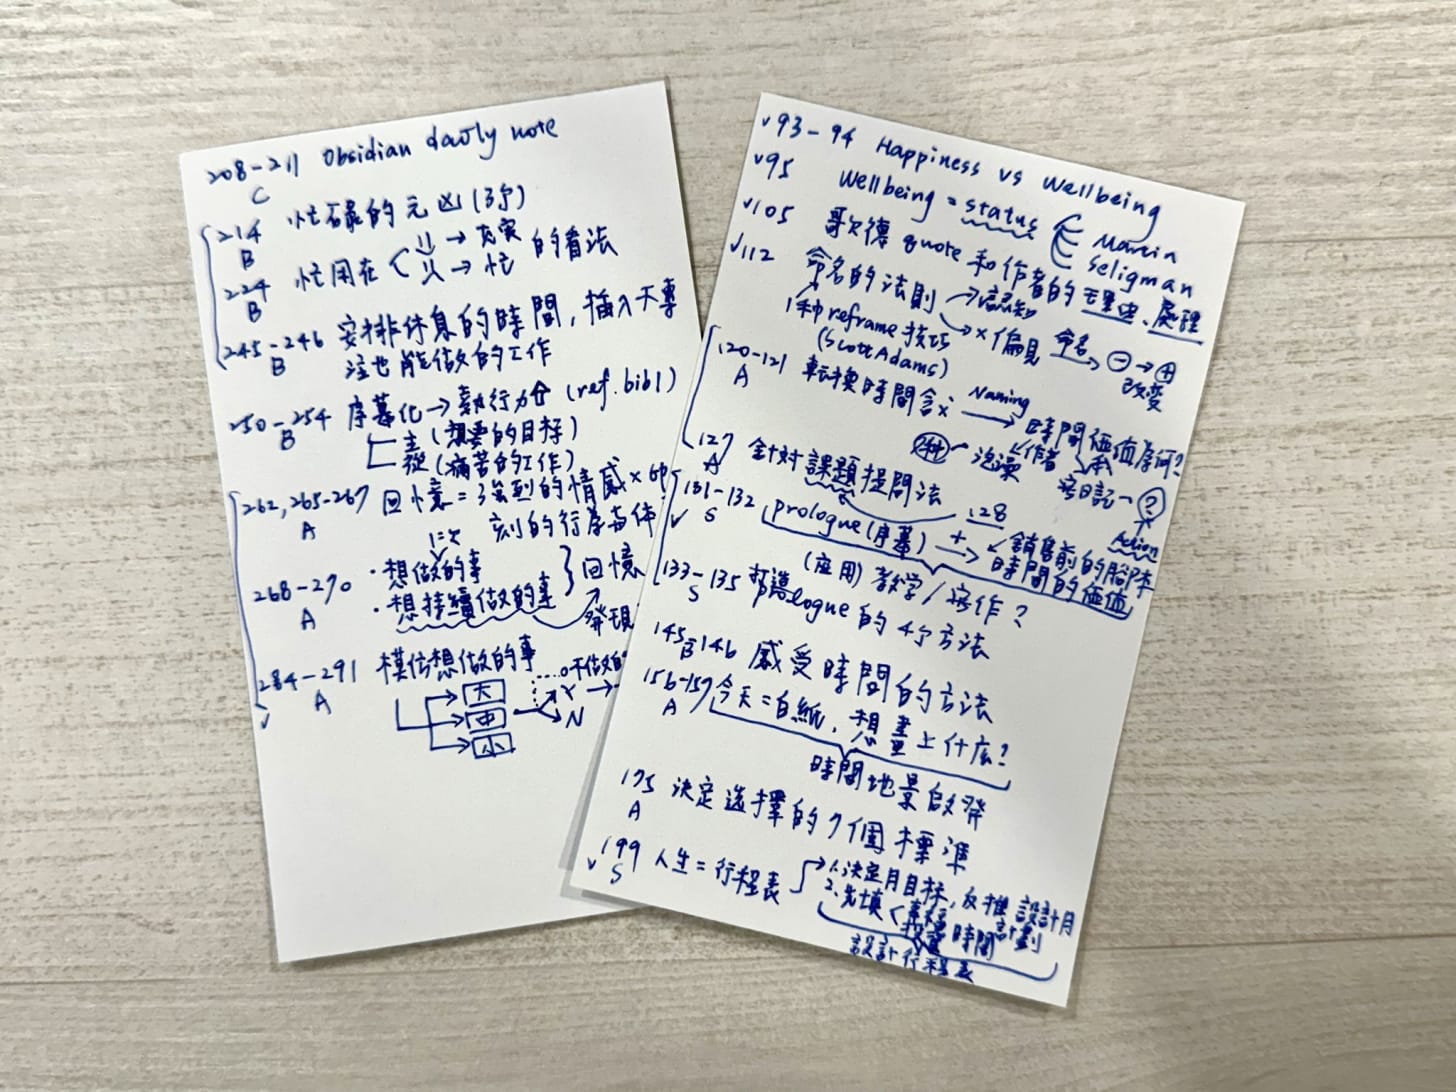 208-211 Obsidian daily note
C
214 忙碌的元凶(3つ)
B
224 忙用在 → 充実 的看法
B → 忙
245-246 安排休息的時間,插入不專
B 注也能做的工作
250-254 序幕化→執行力 (ref. bib1)
B 主(想要的目標)
從(痛苦的工作)
262, 265-267 回憶=強烈的情感×
A 刻的行為
268-270 ・想做的事 回憶
A ・想持續做的事 發現
284-291 模仿想做的事
A 大 不做的
中 Y →
小 N
v 93-94 Happiness vs Wellbeing
v 95 Wellbeing = status Martin
Seligman
v 105 歌德 quote 和作者的 理由、處理
v 112 命名的法則 → 認知
→ × 偏見 命名 → ⊖→⊕
改變
1種 reframe 技巧
(Scott Adams)
120-121 轉換時間 Naming → 時間価値為何?
A 2種 泡澡 作者
寫日記 - ?
Action
127 針對課題提問法
A 128
131-132 prologue (序幕) + → 銷售前的腳本
v S 時間的価値
(応用) 教学/寫作?
133-135 打造 prologue 的 4个方法
S
145-146 感受時間的方法
B
156-157 今天=白紙,想畫上什麼?
A 時間地景啟發
175 決定選擇的7個標準
A
v 199 人生=行程表 1.決定月目標,反推設計月計劃
S 2.先填 時間
設計行程表